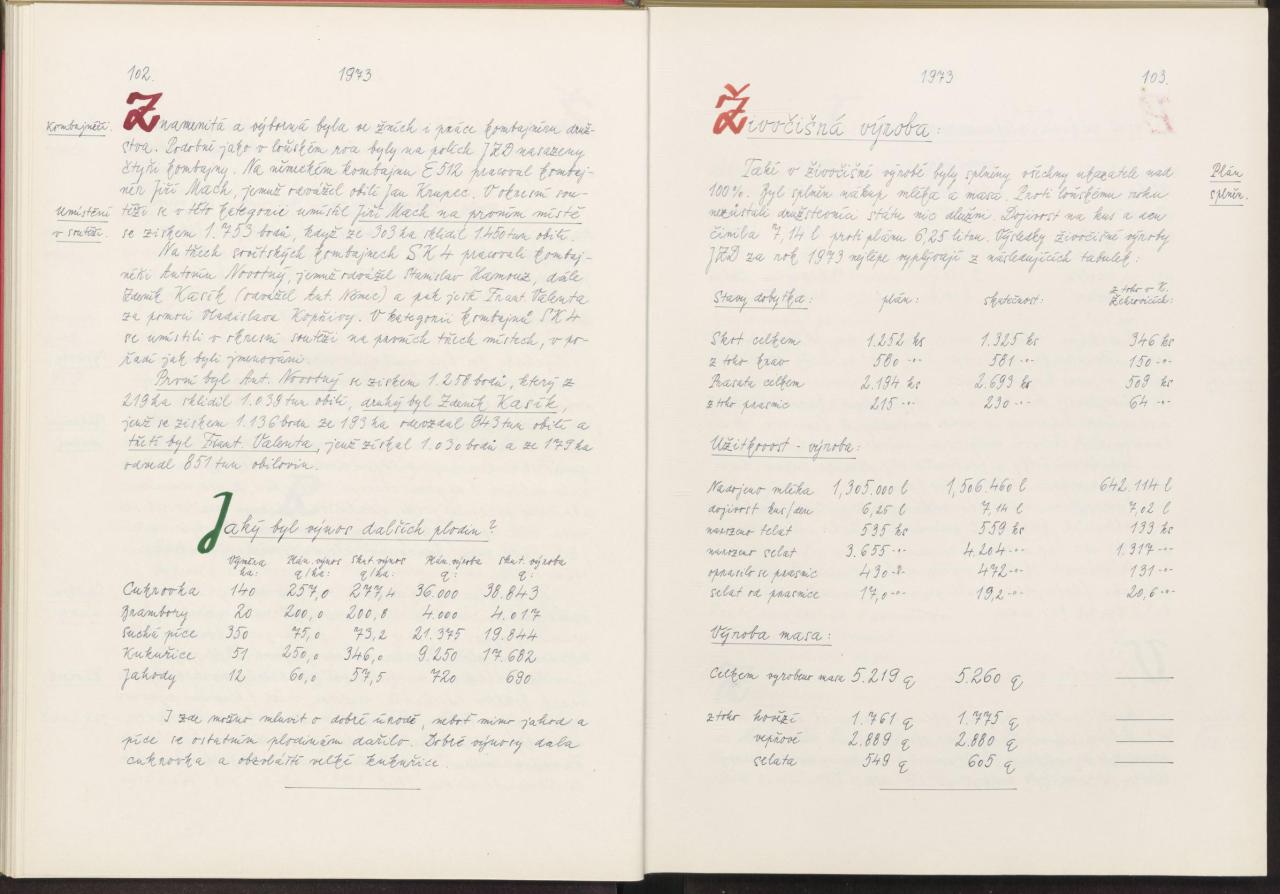 102. 1973
Kombajnéři.
Znamenitá a výborná byla ve žních i práce kombajnérů druž-
stva. Podobně jako v loňském roce byly na polích JZD nasazeny
čtyři kombajny. Na německém kombajnu E 512 pracoval kombaj-
nér Jiří Mach, jemuž odvážel obilí Jan Krupec. V okresní sou-
Umístění
v soutěži.
těži se v této kategorii umístil Jiří Mach na prvním místě
se ziskem 1.753 bodů, když ze 303 ha sklidil 1450 tun obilí.
Na třech sovětských kombajnech SK 4 pracovali kombaj-
néři Antonín Novotný, jemuž odvážel Stanislav Hamouz, dále
Zdeněk Kasík (odvážel Ant. Němec) a pak ještě Frant. Valenta
za pomoci Vladislava Kopřivy. V kategorii kombajnů SK 4
se umístili v okresní soutěži na prvních třech místech, v po-
řadí jak byli jmenováni.
První byl Ant. Novotný se ziskem 1.258 bodů, který z
219 ha sklidil 1.039 tun obilí, druhý byl Zdeněk Kasík,
jenž se ziskem 1.136 bodů ze 193 ha odevzdal 943 tun obilí a
třetí byl Frant. Valenta, jenž získal 1.030 bodů a ze 179 ha
odvedl 851 tun obilovin.
Jaký byl výnos dalších plodin?
Výměra ha: Plán. výnos q/ha: Skut. výnos q/ha: Plán. výroba q: Skut. výroba q:
Cukrovka 140 257,0 277,4 36.000 38.843
Brambory 20 200,0 200,8 4.000 4.017
Suchá píce 350 75,0 73,2 21.375 19.844
Kukuřice 51 250,0 346,0 9.250 17.682
Jahody 12 60,0 57,5 720 690
I zde možno mluvit o dobré úrodě, neboť mimo jahod a
píce se ostatním plodinám dařilo. Dobré výnosy dala
cukrovka a obzvláště velké kukuřice.
1973 103.
Živočišná výroba:
Také v živočišné výrobě byly splněny všechny ukazatele nad
Plán
splněn.
100%. Byl splněn nákup mléka a masa. Proti loňskému roku
nezůstali družstevníci státu nic dlužni. Dojivost na kus a den
činila 7,14 l proti plánu 6,25 litru. Výsledky živočišné výroby
JZD za rok 1973 nejlépe vyplývají z následujících tabulek:
Stavy dobytka: plán: skutečnost: z toho v N. Žehrovicích:
Skot celkem 1.252 ks 1.325 ks 346 ks
z toho krav 580 -"- 581 -"- 150 -"-
Prasata celkem 2.194 ks 2.693 ks 509 ks
z toho prasnic 215 -"- 230 -"- 64 -"-
Užitkovost - výroba:
Nadojeno mléka 1,305.000 l 1,506.460 l 642.114 l
dojivost kus/den 6,25 l 7,14 l 7,02 l
narozeno telat 535 ks 559 ks 133 ks
narozeno selat 3.655 -"- 4.204 -"- 1.317 -"-
oprasilo se prasnic 430 -"- 472 -"- 131 -"-
selat od prasnice 17,0 -"- 19,2 -"- 20,6 -"-
Výroba masa:
Celkem vyrobeno masa 5.219 q 5.260 q
z toho hovězí 1.761 q 1.775 q
vepřové 2.889 q 2.880 q
selata 549 q 605 q